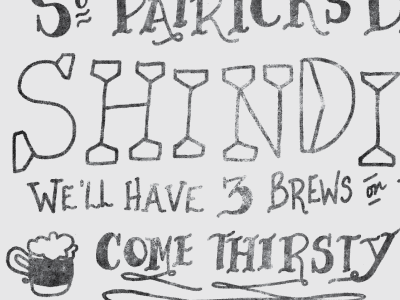 St PATRICKS D
SHINDI
WE'LL HAVE 3 BREWS on
COME THIRSTY